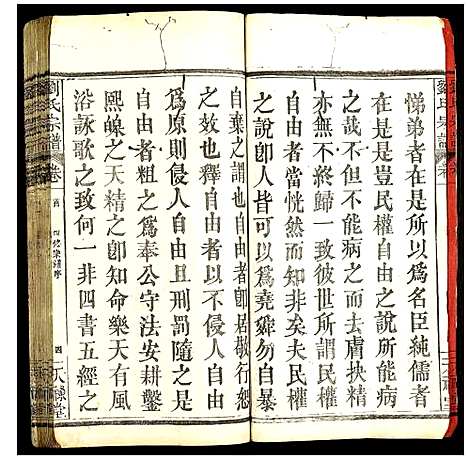 劉氏宗譜
卷
悌弟者在是所以爲名臣純儒者
在是豈民權自由之說所能病
之哉不但不能病之而膚抉精
亦無不終歸一致民權
自由者當恍然非矣夫民
之說卽人皆可以爲堯舜勿自暴
自棄之謂也自由者卽居敬行恕
之效也釋自由者自由
爲原則侵人自由且刑罰隨之是
自由者粗之爲奉公守法安耕鑿
熙皞之天精之卽知命樂天有風
浴詠歌之致何一非四書五經之
劉氏宗譜
卷
首
四
八釐堂